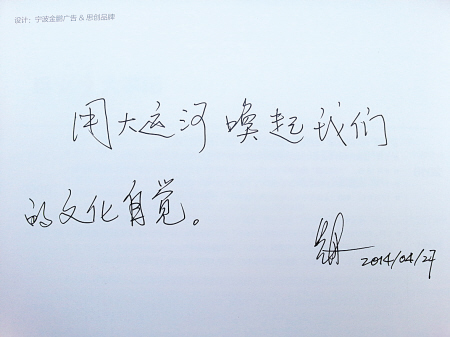 设计：宁波金鹏广告 & 思创品牌
用大运河唤起我们
的文化自觉。
2014/04/27